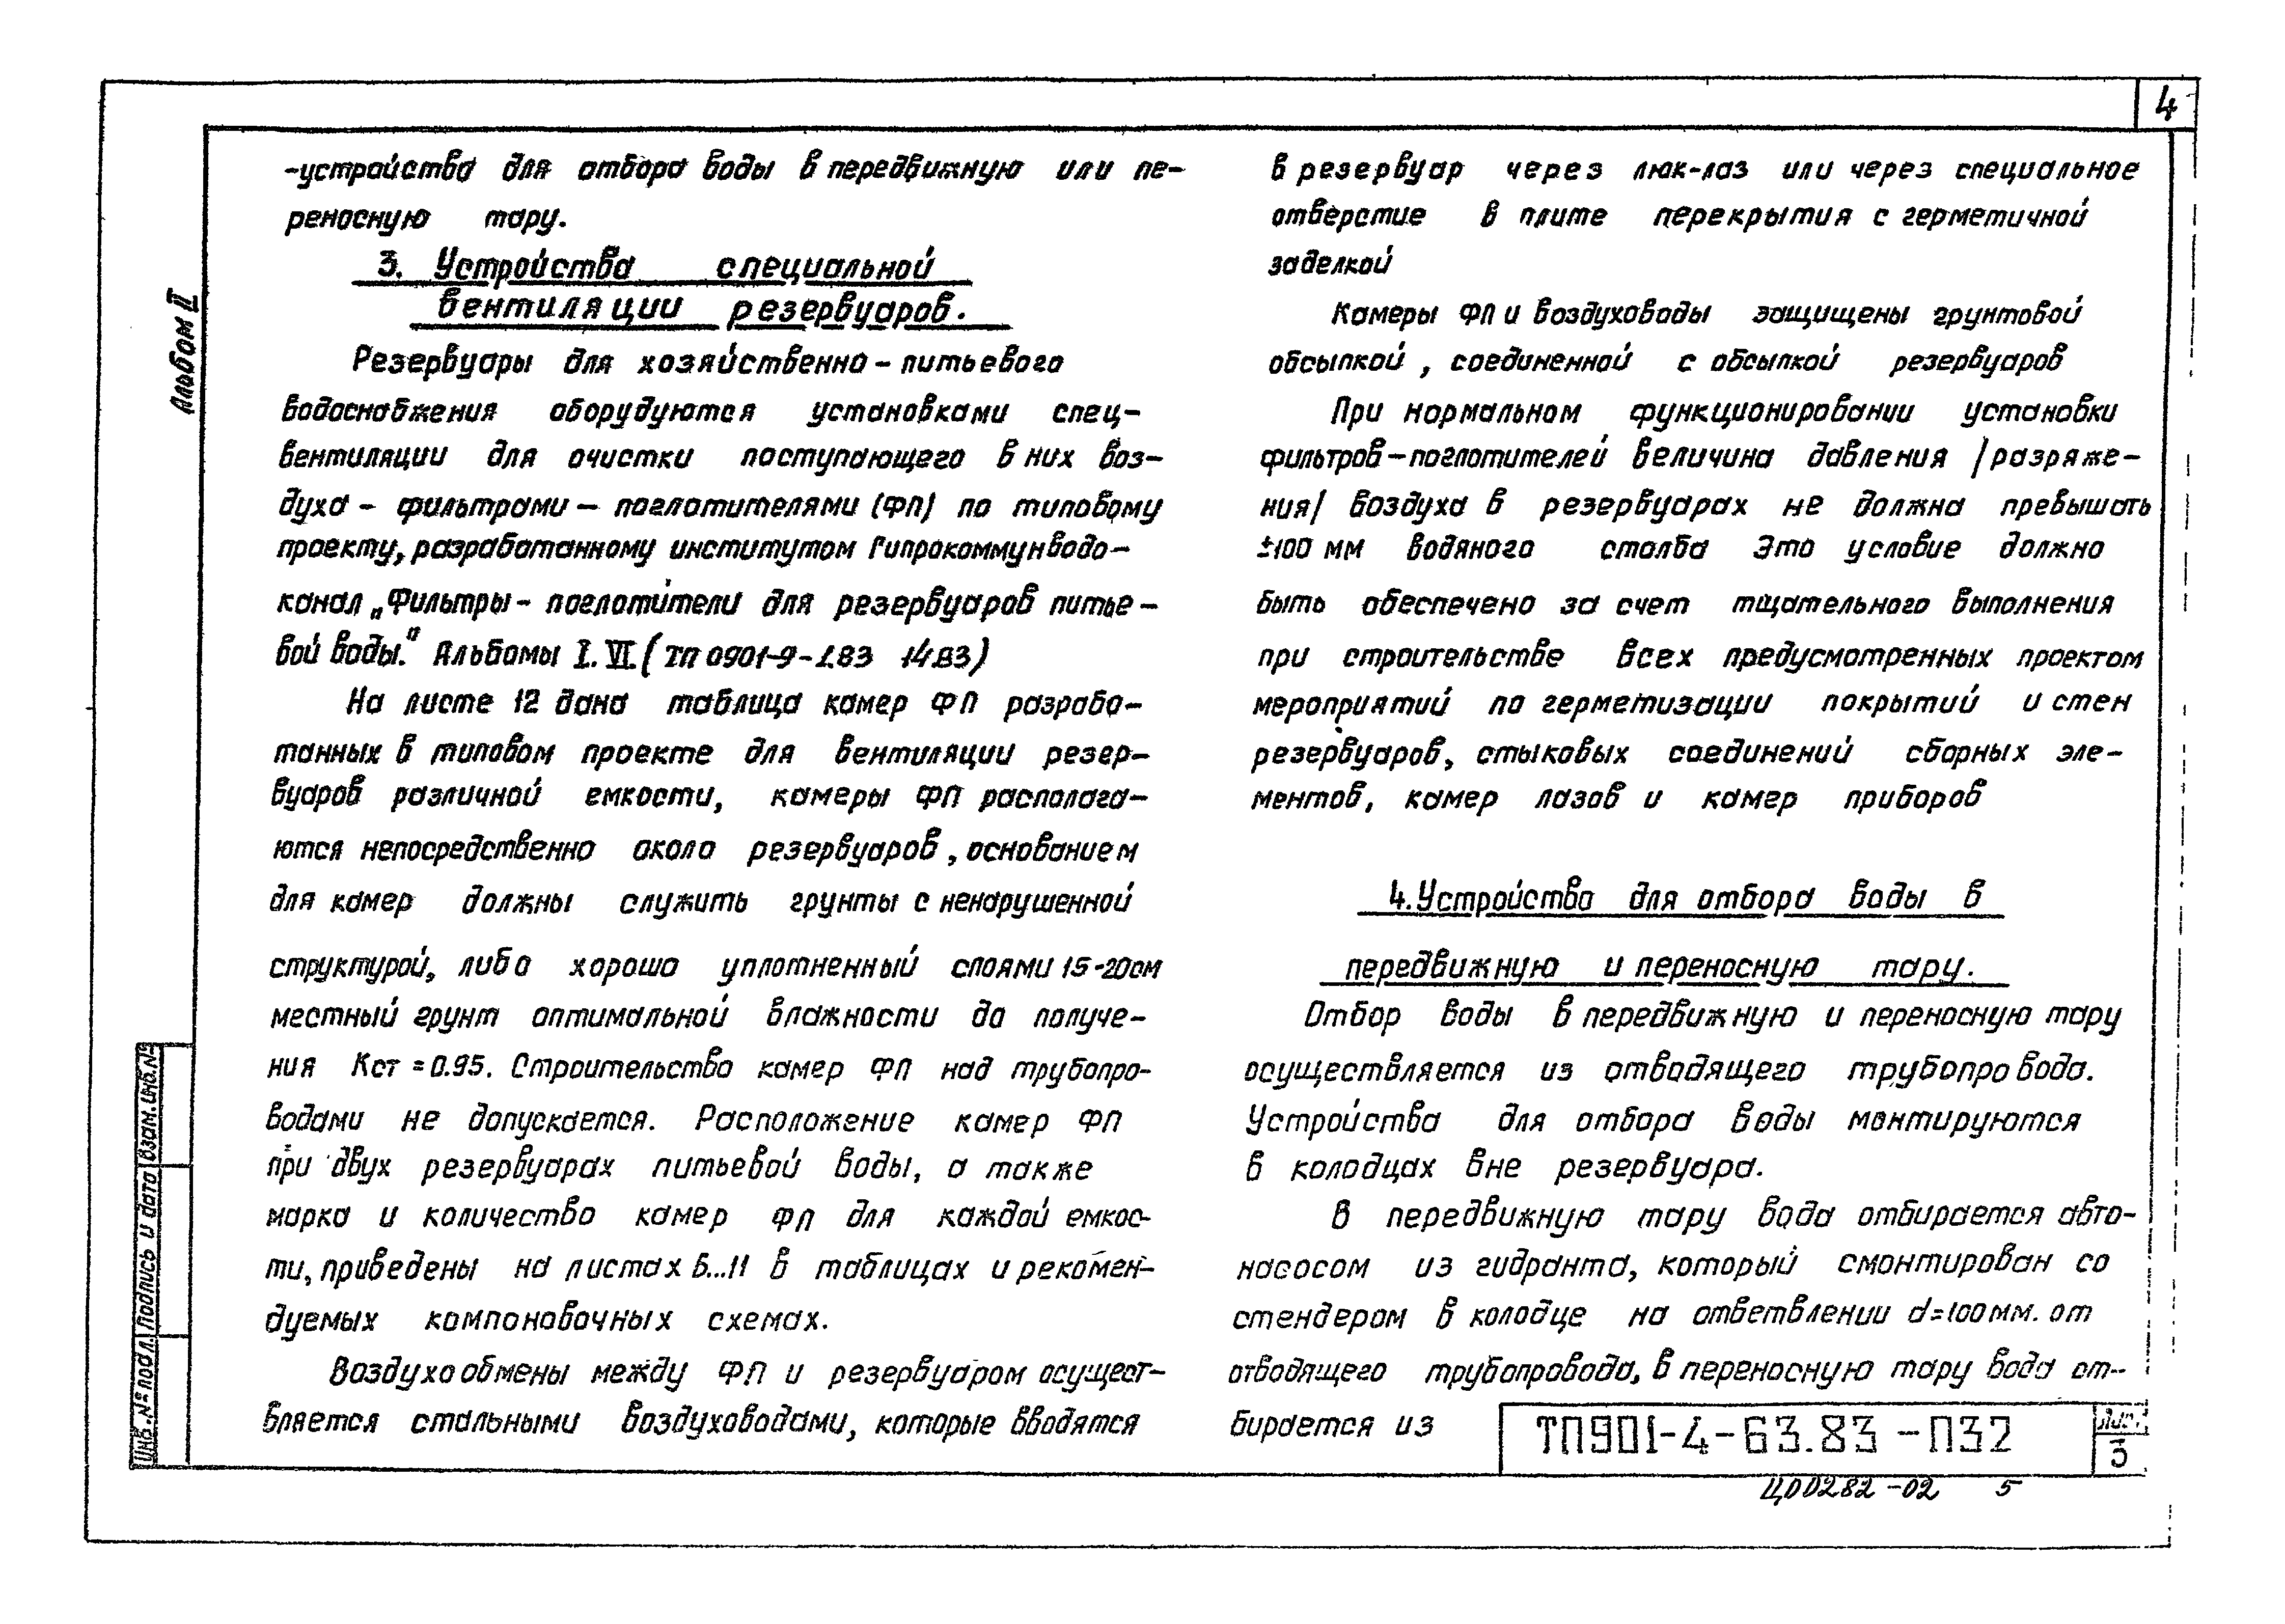 4
Альбом II
-устройства для отбора воды в передвижную или пе-
реносную тару.
3. Устройства специальной
вентиляции резервуаров.
Резервуары для хозяйственно-питьевого
водоснабжения оборудуются установками спец-
вентиляции для очистки поступающего в них воз-
духа - фильтрами - поглотителями (ФП) по типовому
проекту, разработанному институтом Гипрокоммунводо-
канал „Фильтры-поглотители для резервуаров питье-
вой воды." Альбомы I. VI. (ТП 0901-9-
На листе 12 дана таблица камер ФП разрабо-
танных в типовом проекте для вентиляции резер-
вуаров различной емкости, камеры ФП располага-
ются непосредственно около резервуаров, основанием
для камер должны служить грунты с ненарушенной
структурой, либо хорошо уплотненный слоями 15-20см
местный грунт оптимальной влажности до получе-
ния Кст = 0.95. Строительство камер ФП над трубопро-
водами не допускается. Расположение камер ФП
при двух резервуарах питьевой воды, а также
марка и количество камер ФП для каждой емкос-
ти, приведены на листах 6...11 в таблицах и рекомен-
дуемых компоновочных схемах.
Воздухообмены между ФП и резервуаром осущест-
вляется стальными воздуховодами, которые вводятся
в резервуар через люк-лаз или через специальное
отверстие в плите перекрытия с герметичной
заделкой
Камеры ФП и воздуховоды защищены грунтовой
обсыпкой, соединенной с обсыпкой резервуаров
При нормальном функционировании установки
фильтров-поглотителей величина давления /разряже-
ния/ воздуха в резервуарах не должна превышать
±100 мм водяного столба Это условие должно
быть обеспечено за счет тщательного выполнения
при строительстве всех предусмотренных проектом
мероприятий по герметизации покрытий и стен
резервуаров, стыковых соединений сборных эле-
ментов, камер лазов и камер приборов
4. Устройства для отбора воды в
передвижную и переносную тару.
Отбор воды в передвижную и переносную тару
осуществляется из отводящего трубопровода.
Устройства для отбора воды монтируются
в колодцах вне резервуара.
В передвижную тару вода отбирается авто-
насосом из гидранта, который смонтирован со
стендером в колодце на ответвлении d=100мм. от
отводящего трубопровода, в переносную тару вода от-
бирается из
Инв. № подл. Подпись и дата Взам. инв. №
ТП901-4-63.83 -ПЗ2
Лист
3
ЦО0282-02 5